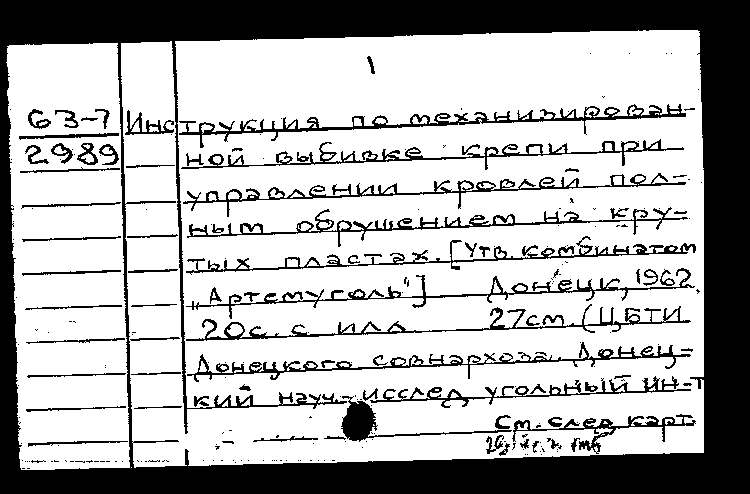 1
63-7 Инструкция по механизирован-
2989 ной выбивке крепи при
управлении кровлей пол-
ным обрушением на кру-
тых пластах. [Утв. комбинатом
„Артемуголь"] Донецк, 1962.
20с. с илл 27см. (ЦБТИ
Донецкого совнархоза. Донец-
кий науч.-исслед угольный ин-т
См. след карт.